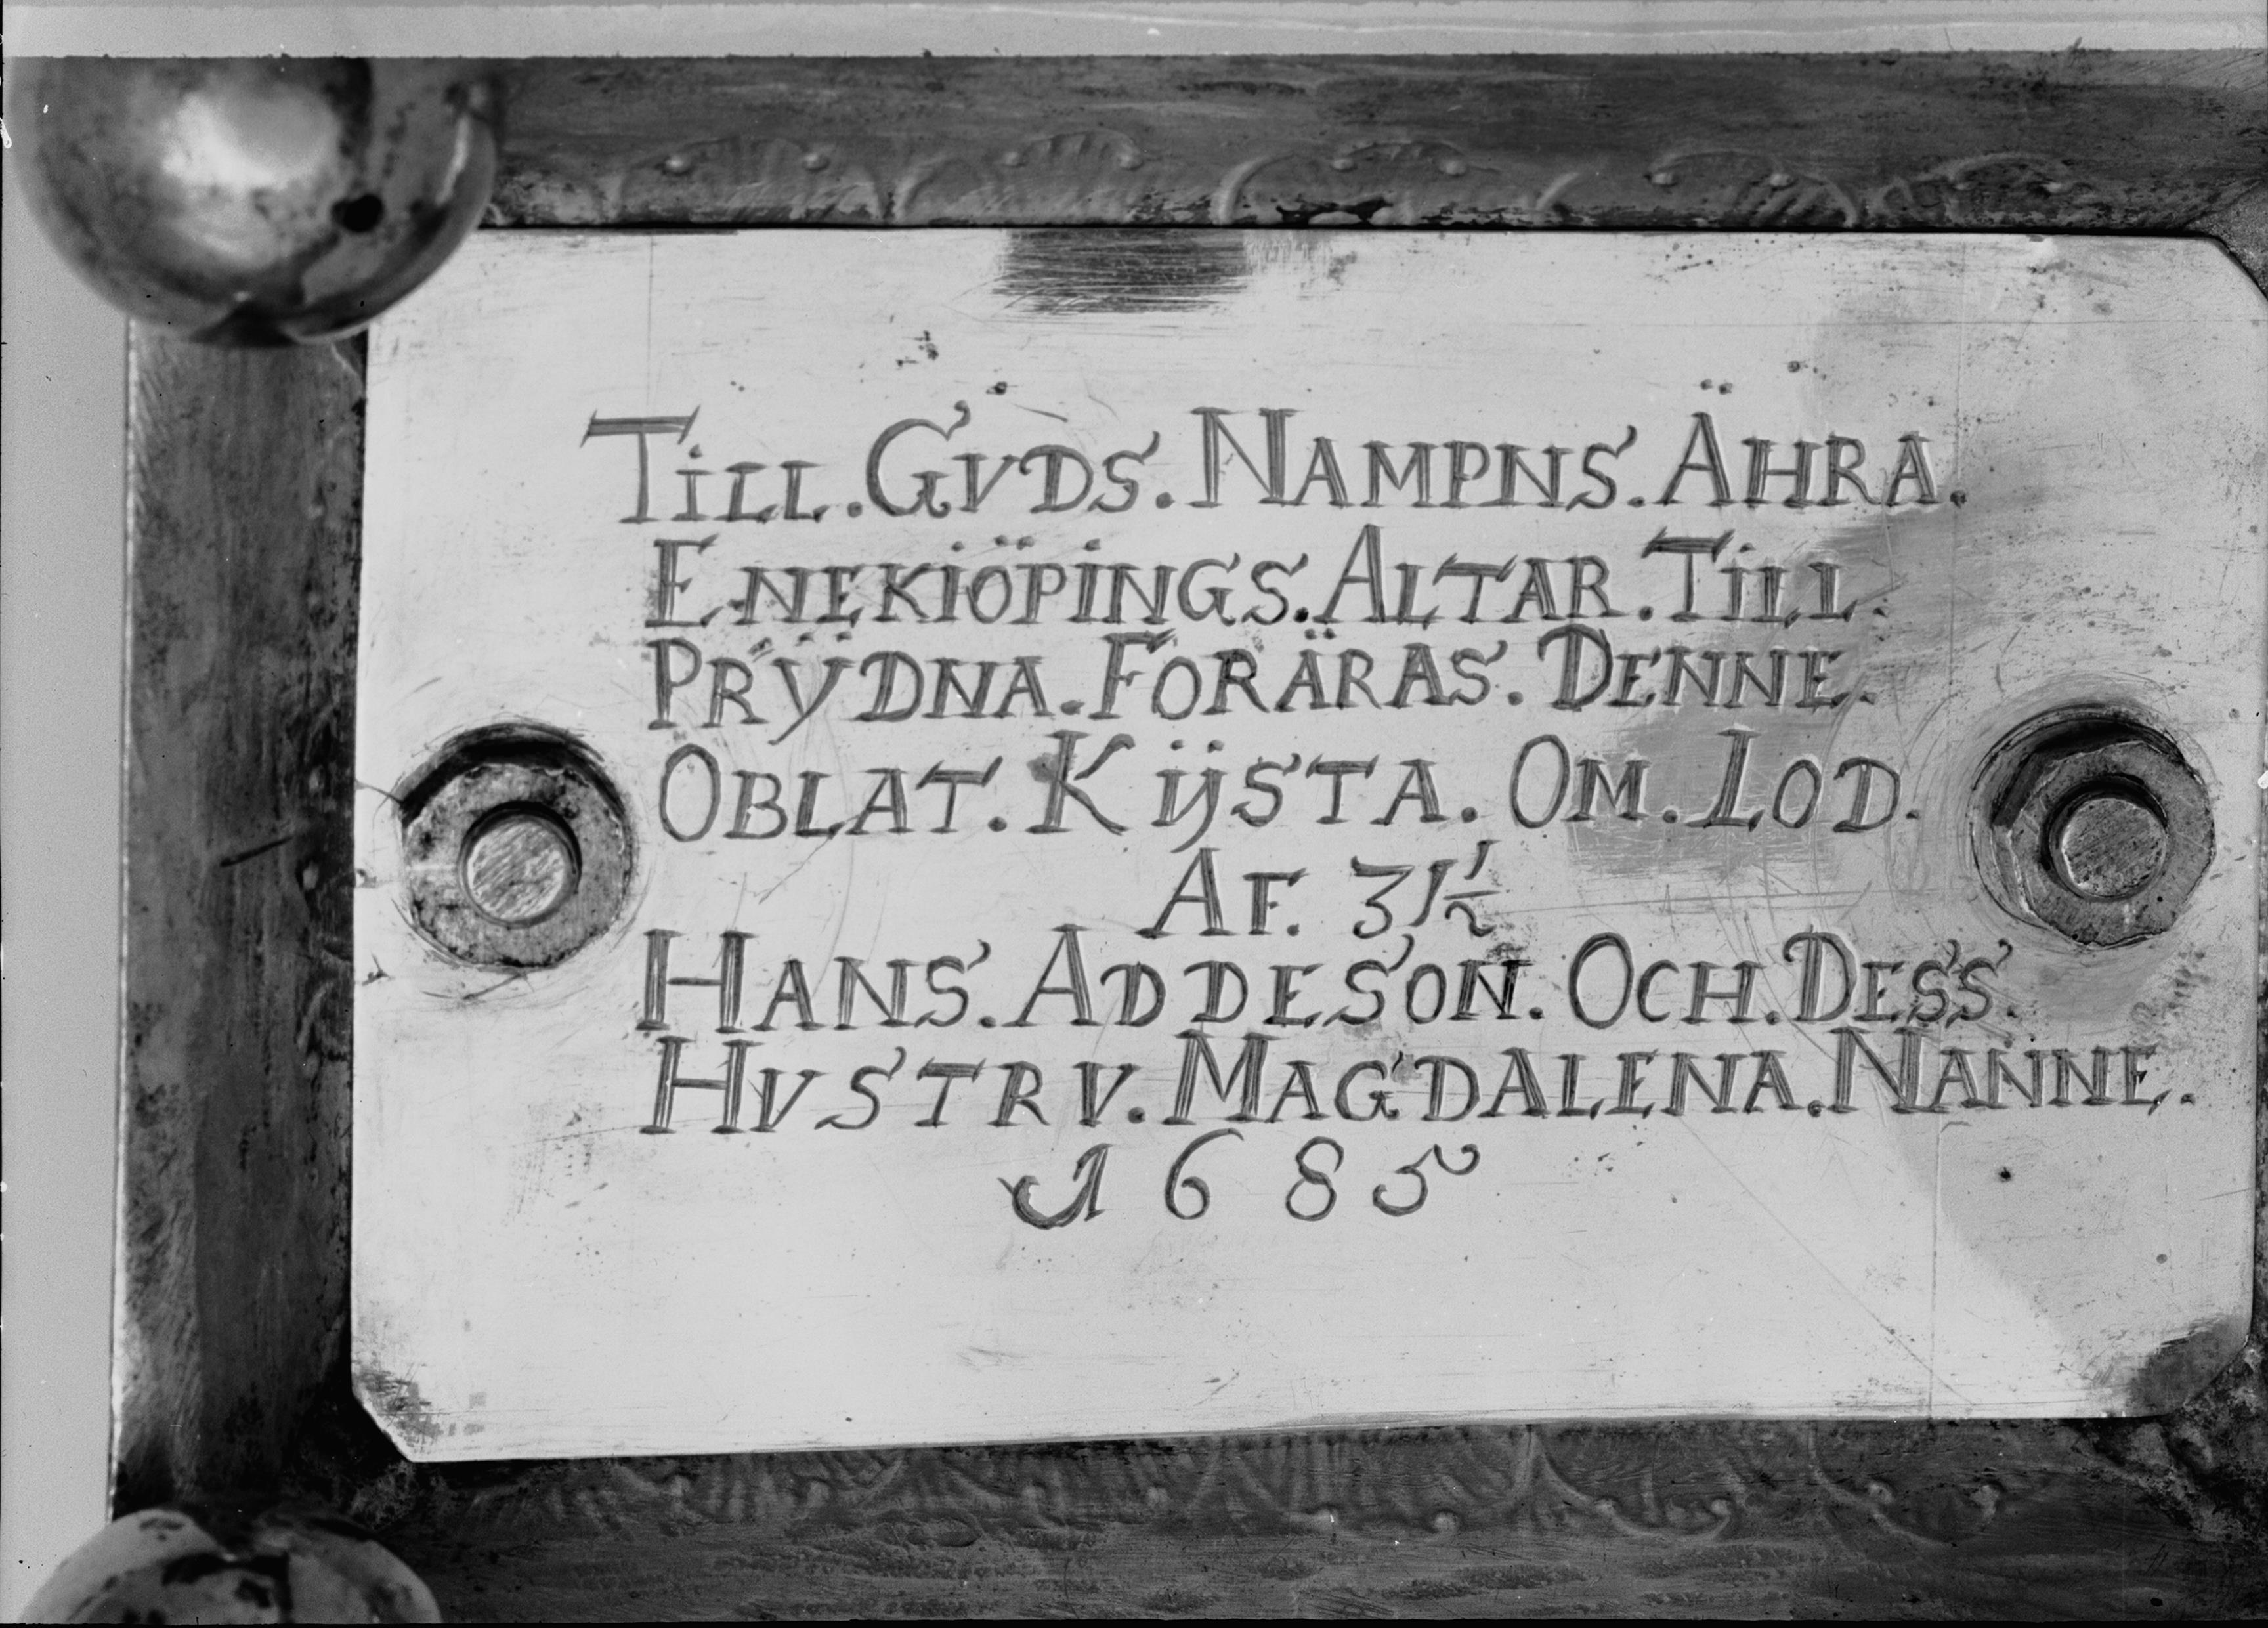 TiLL. GVDS. NAMPNS. ÄHRA.
ENEKiÖPiNGS. ALTAR. TiLL.
PRŸDNA. FORÄRAS. DENNE.
OBLAT. KijSTA. OM. LOD.
AF. 31½
HANS. ADDESON. OCH. DESS.
HVSTRV. MAGDALENA. NANNE.
1685